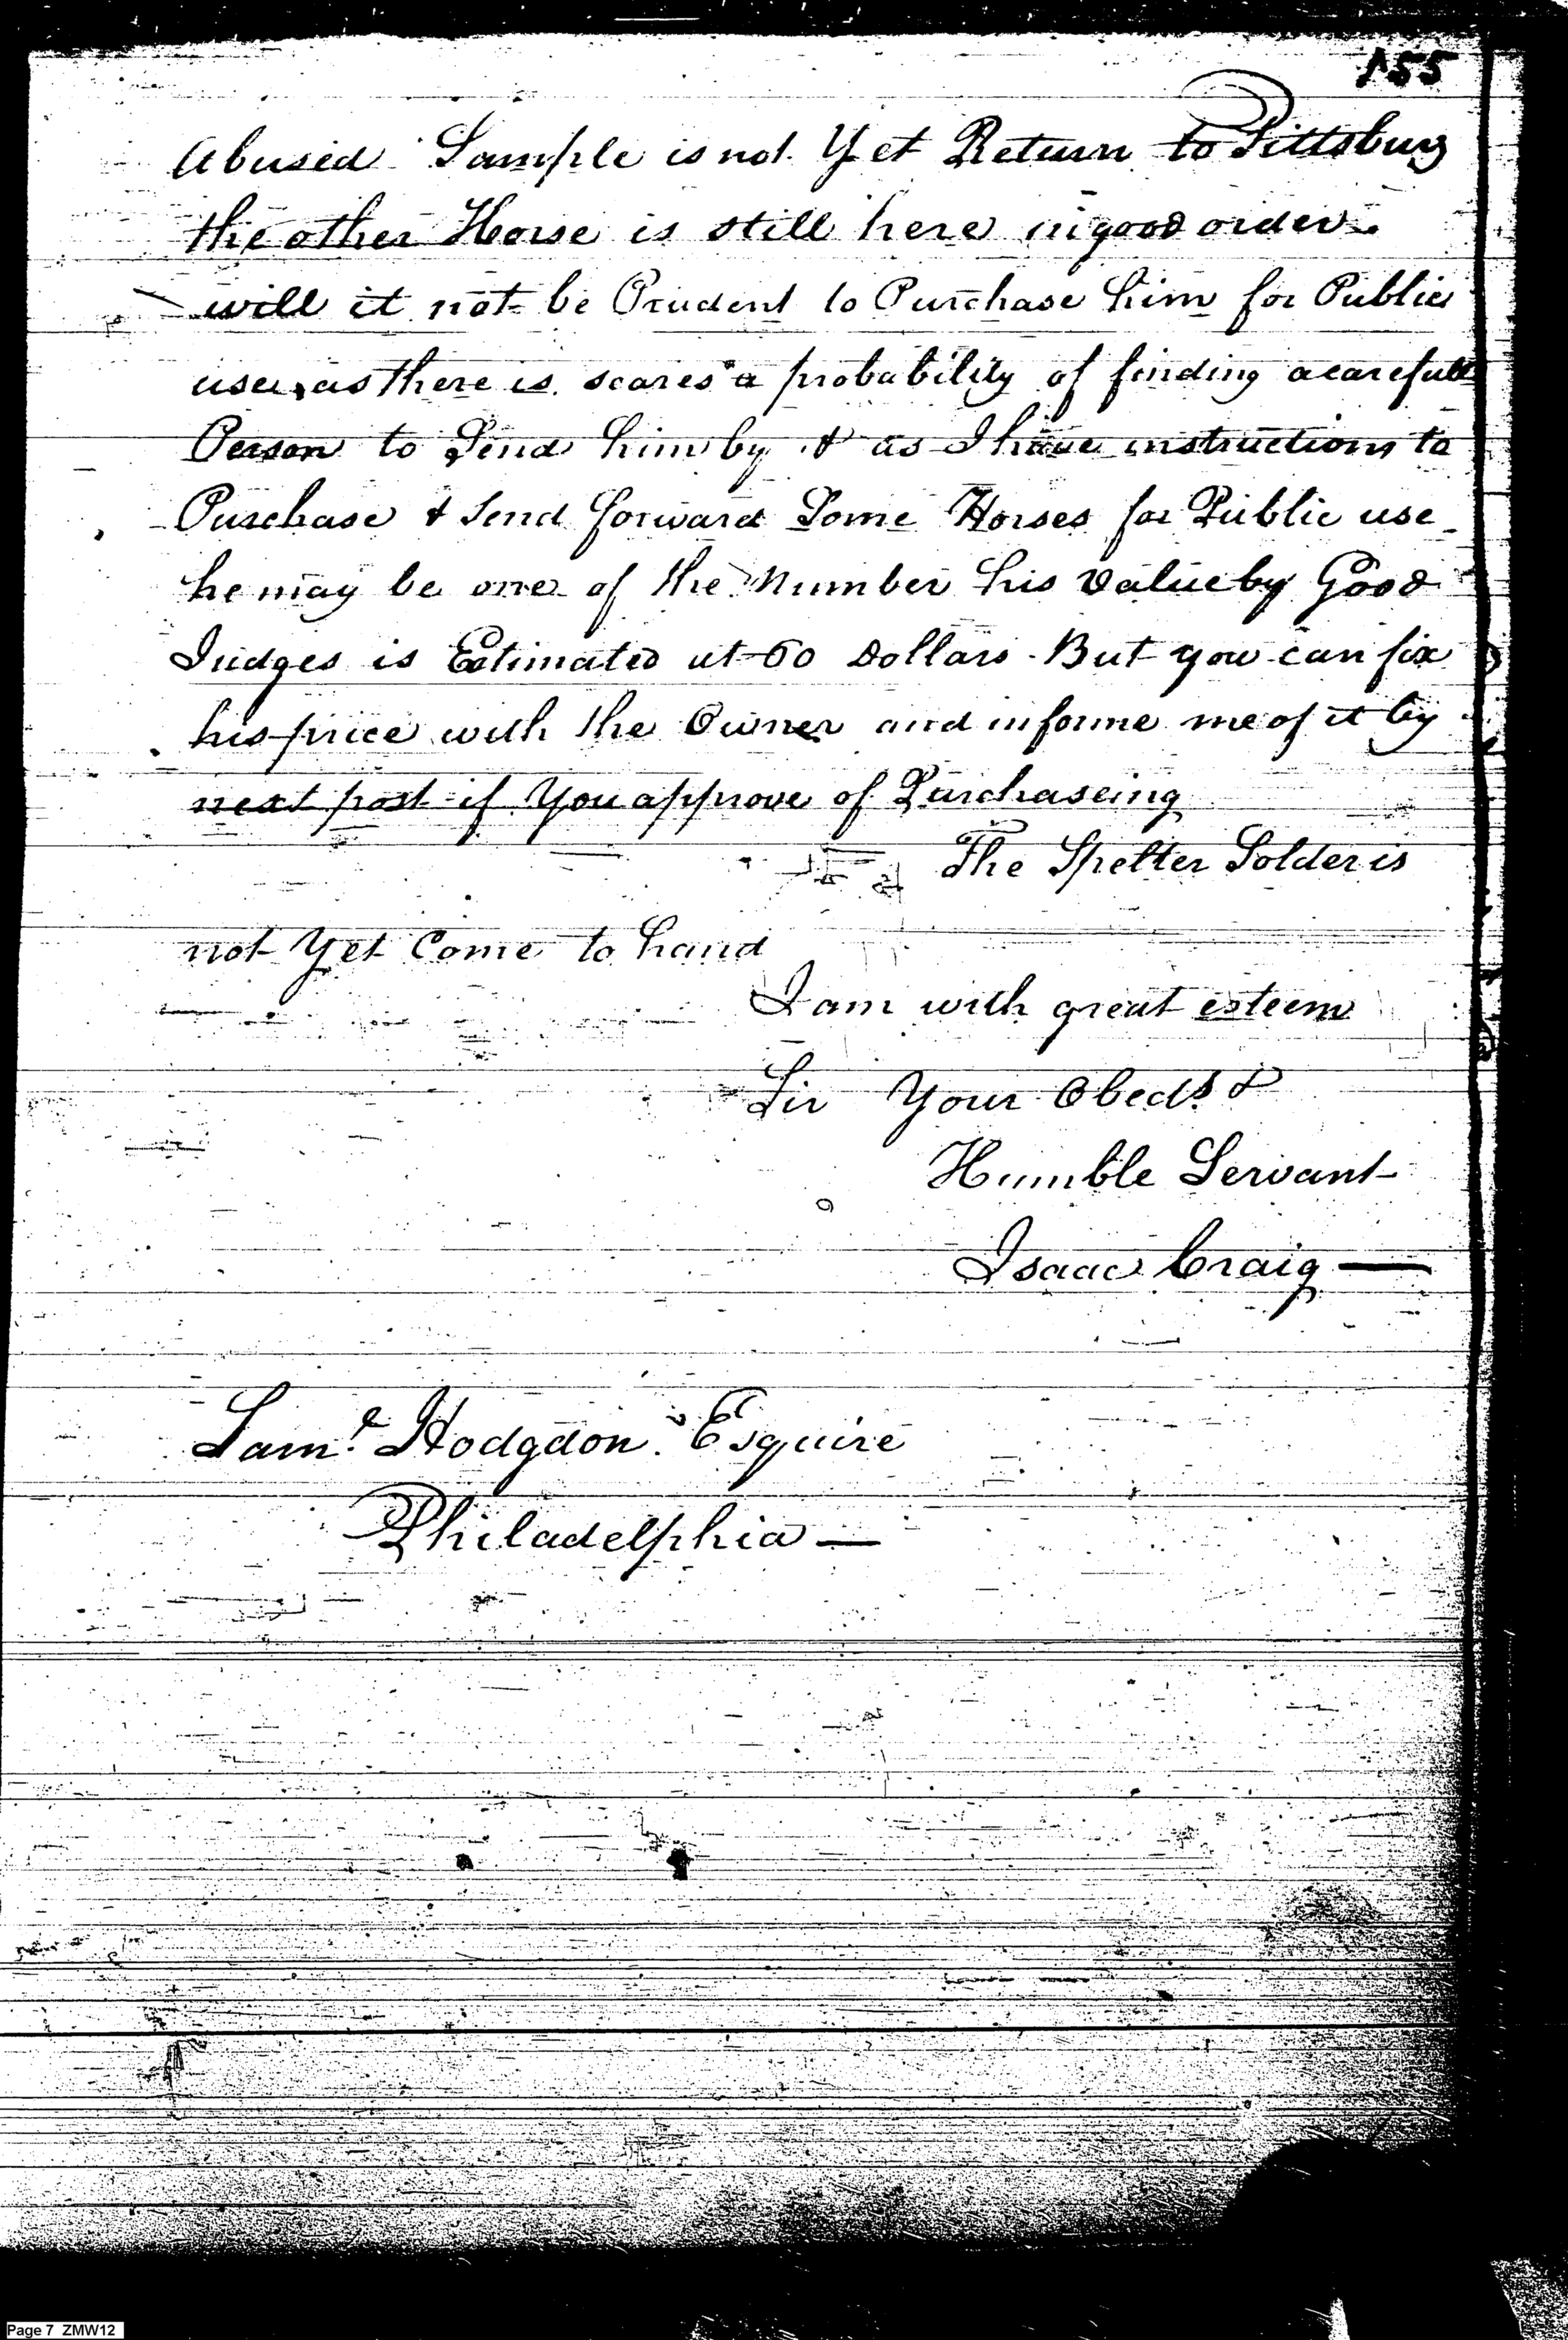 155
Abused Sample is not Yet Return to Pittsburg
the other Horse is still here in good order
will it not be Prudent to Purchase him for Public
use, as there is scares a probability of finding a carefull
Person to Send him by & as I have instructions to
Purchase & Send forward Some Horses for Public use
he may be one of the Number his Value by Good
Judges is Estimated at 60 Dollars. But you can fix
his price with the Owner and informe me of it by
next post if You approve of Purchaseing
The Spelter Solder is
not Yet Come to hand
I am with great esteem
Sir Your Obedt. &
Humble Servant
Isaac Craig —
Saml. Hodgdon. Esquire
Philadelphia —
Page 7 ZMW12